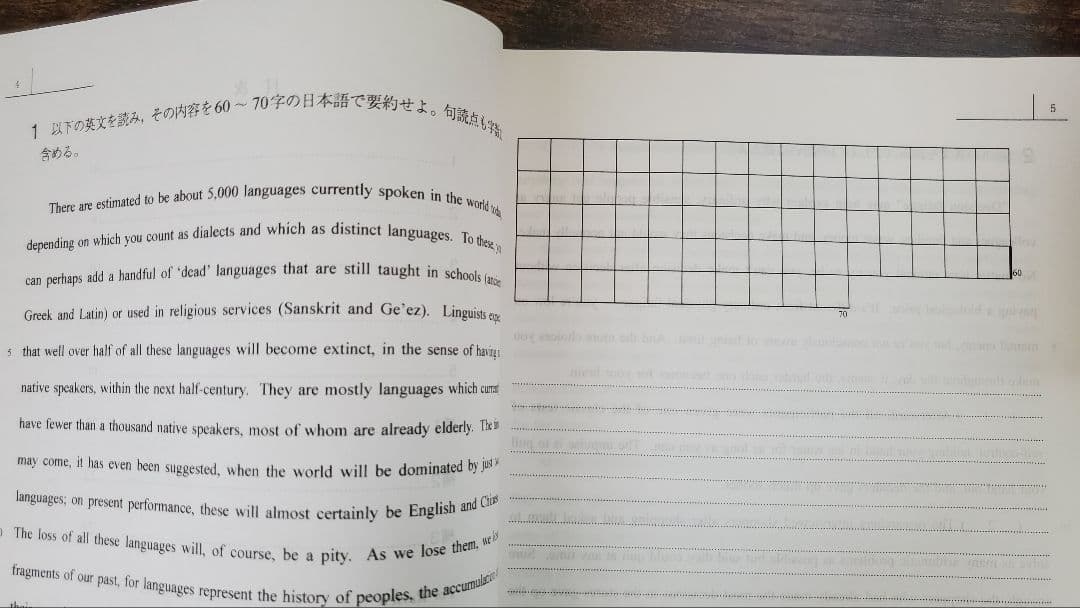 4
1 以下の英文を読み，その内容を60～70字の日本語で要約せよ。句読点も字数
含める。
There are estimated to be about 5,000 languages currently spoken in the world
depending on which you count as dialects and which as distinct languages. To these
can perhaps add a handful of ‘dead’ languages that are still taught in schools
Greek and Latin) or used in religious services (Sanskrit and Ge’ez). Linguists
5 that well over half of all these languages will become extinct, in the sense of having
native speakers, within the next half-century. They are mostly languages which
have fewer than a thousand native speakers, most of whom are already elderly. The
may come, it has even been suggested, when the world will be dominated by just
languages; on present performance, these will almost certainly be English and
The loss of all these languages will, of course, be a pity. As we lose them, we
fragments of our past, for languages represent the history of peoples, the
5
60
70